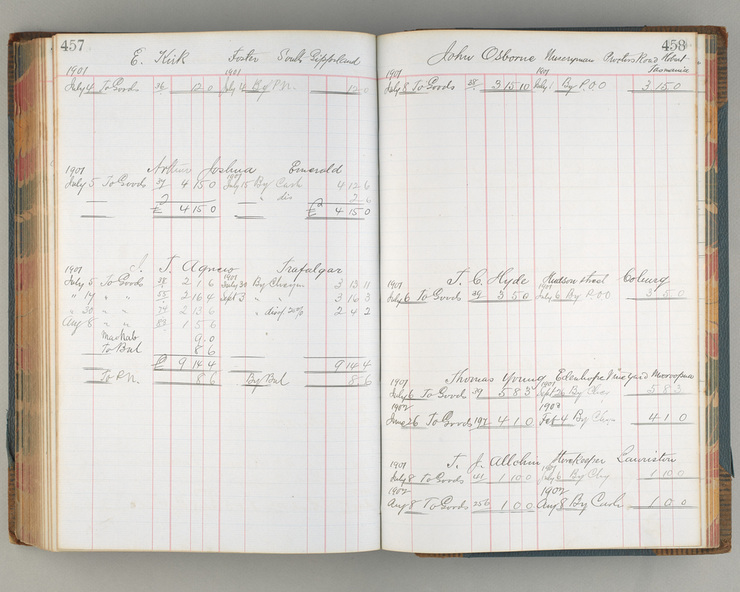 457
E. Kirk Foster South Gippsland
1901 1901
July 4 To Goods 36 12 0 July 4 By P.N. 12 0
Arthur Joshua Emerald
1901 1901
July 5 To Goods 37 4 15 0 July 15 By Cash 4 12 6
" dis 2 6
£ 4 15 0 £ 4 15 0
T. Agnew Trafalgar
1901 1901
July 5 To Goods 38 2 1 6 July 30 By Cheque 3 13 11
" 17 " " 55 2 16 4 Sept 3 " 3 16 3
" 30 " " 2 13 6 " disct 20% 2 4 2
Aug 8 " " 1 5 6
9 0
To Bal 8 6
£ 9 14 4 9 14 4
To P.N. 8 6 By Bal 8 6
458
John Osborne Nurseryman Proctors Road Hobart
Tasmania
1901 1901
July 5 To Goods 38 3 15 0 July 1 By P.O.O 3 15 0
T. C. Hyde Hudson Street Coburg
1901 1901
July 6 To Goods 39 3 5 0 July 6 By P.O.O 3 5 0
Thomas Young Edenhope Vineyard
1901 1901
July 6 To Goods 39 5 8 3 Sept 20 By Cheq 5 8 3
1902 1902
June 26 To Goods 197 4 1 0 Feb 4 By Cheq 4 1 0
T. J. Allchin Storekeeper Lauriston
1901 1901
July 8 To Goods 41 1 10 0 July 6 By Chq 1 10 0
1902 1902
Aug 8 To Goods 256 1 0 0 Aug 8 By Cash 1 0 0